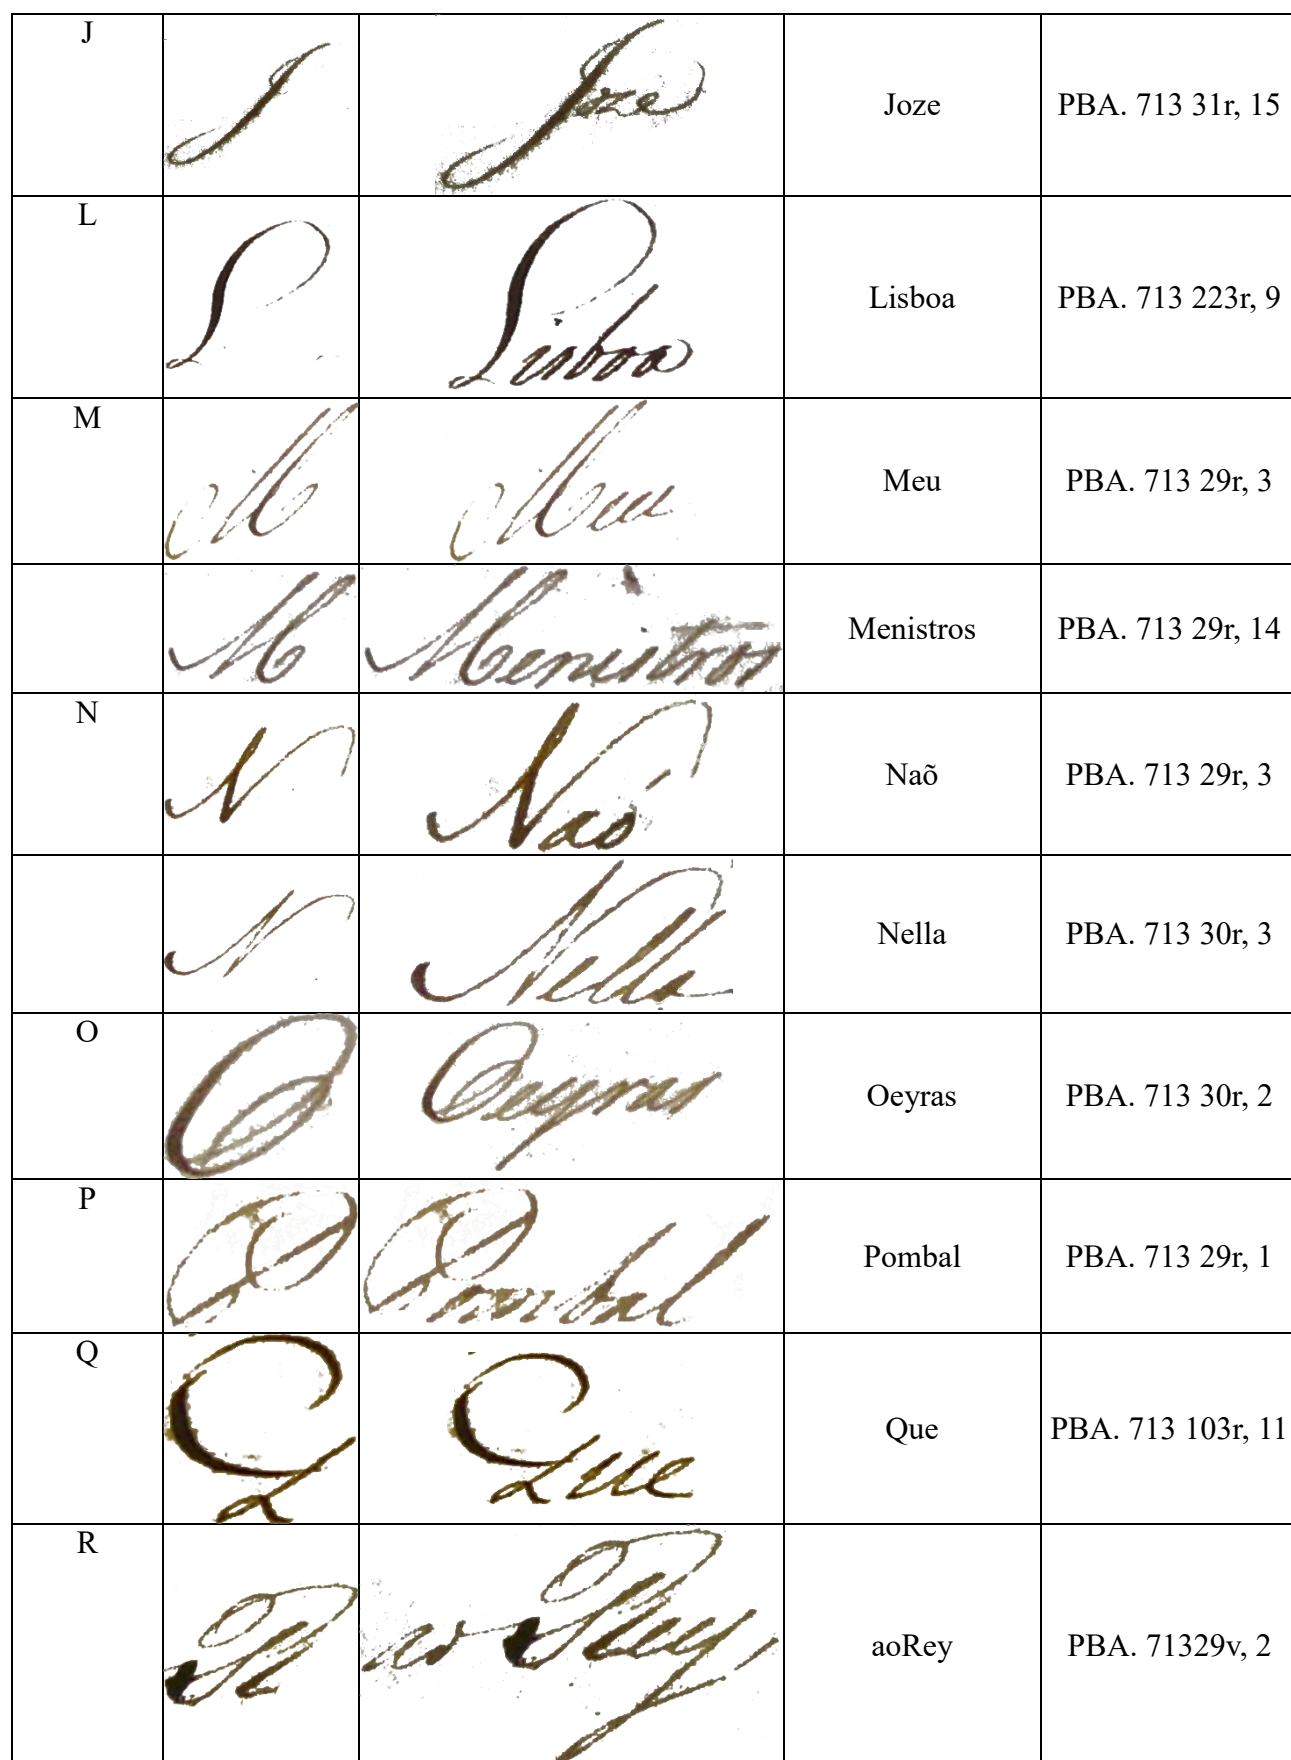 J J Joze Joze PBA. 713 31r, 15
L L Lisboa Lisboa PBA. 713 223r, 9
M M Meu Meu PBA. 713 29r, 3
M Menistros Menistros PBA. 713 29r, 14
N N Naõ Naõ PBA. 713 29r, 3
N Nella Nella PBA. 713 30r, 3
O O Oeyras Oeyras PBA. 713 30r, 2
P P Pombal Pombal PBA. 713 29r, 1
Q Q Que Que PBA. 713 103r, 11
R R ao Rey aoRey PBA. 71329v, 2